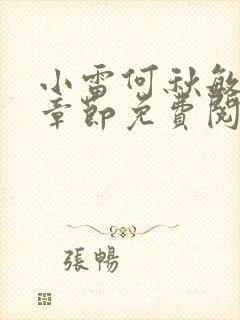 小雷何秋敏
章節免費閱
張暢